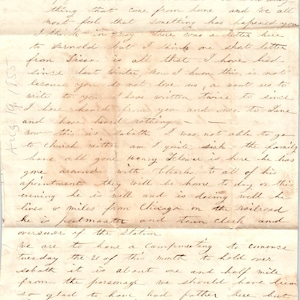 thing that come from home and we all
most feel that something has happened you
I think It City there was a letter here
to Arnold but I think one short letter
from is all that I have had
since last winter now I know this is not
because you do not love us a want us to
write to you I have written twice since
I have heard from you and once to Jane
and have heard nothing
now this is Sabath I was not able to go
to church neither am I quite sick the family
have all gone Flower is here he has
gone around with Charls to all of his
apointments they will be home to day or this
evening he is well and is doing well he
lives 10 miles from Chicago on the railroad
he is postmaster and town clerk and
overseer of the Station
We are to have a Campmeeting to comence
tuesday the 21 of this month to hold over
sobath it is about one and half mile
from the parsonage we should have been
so glad to have had father here but